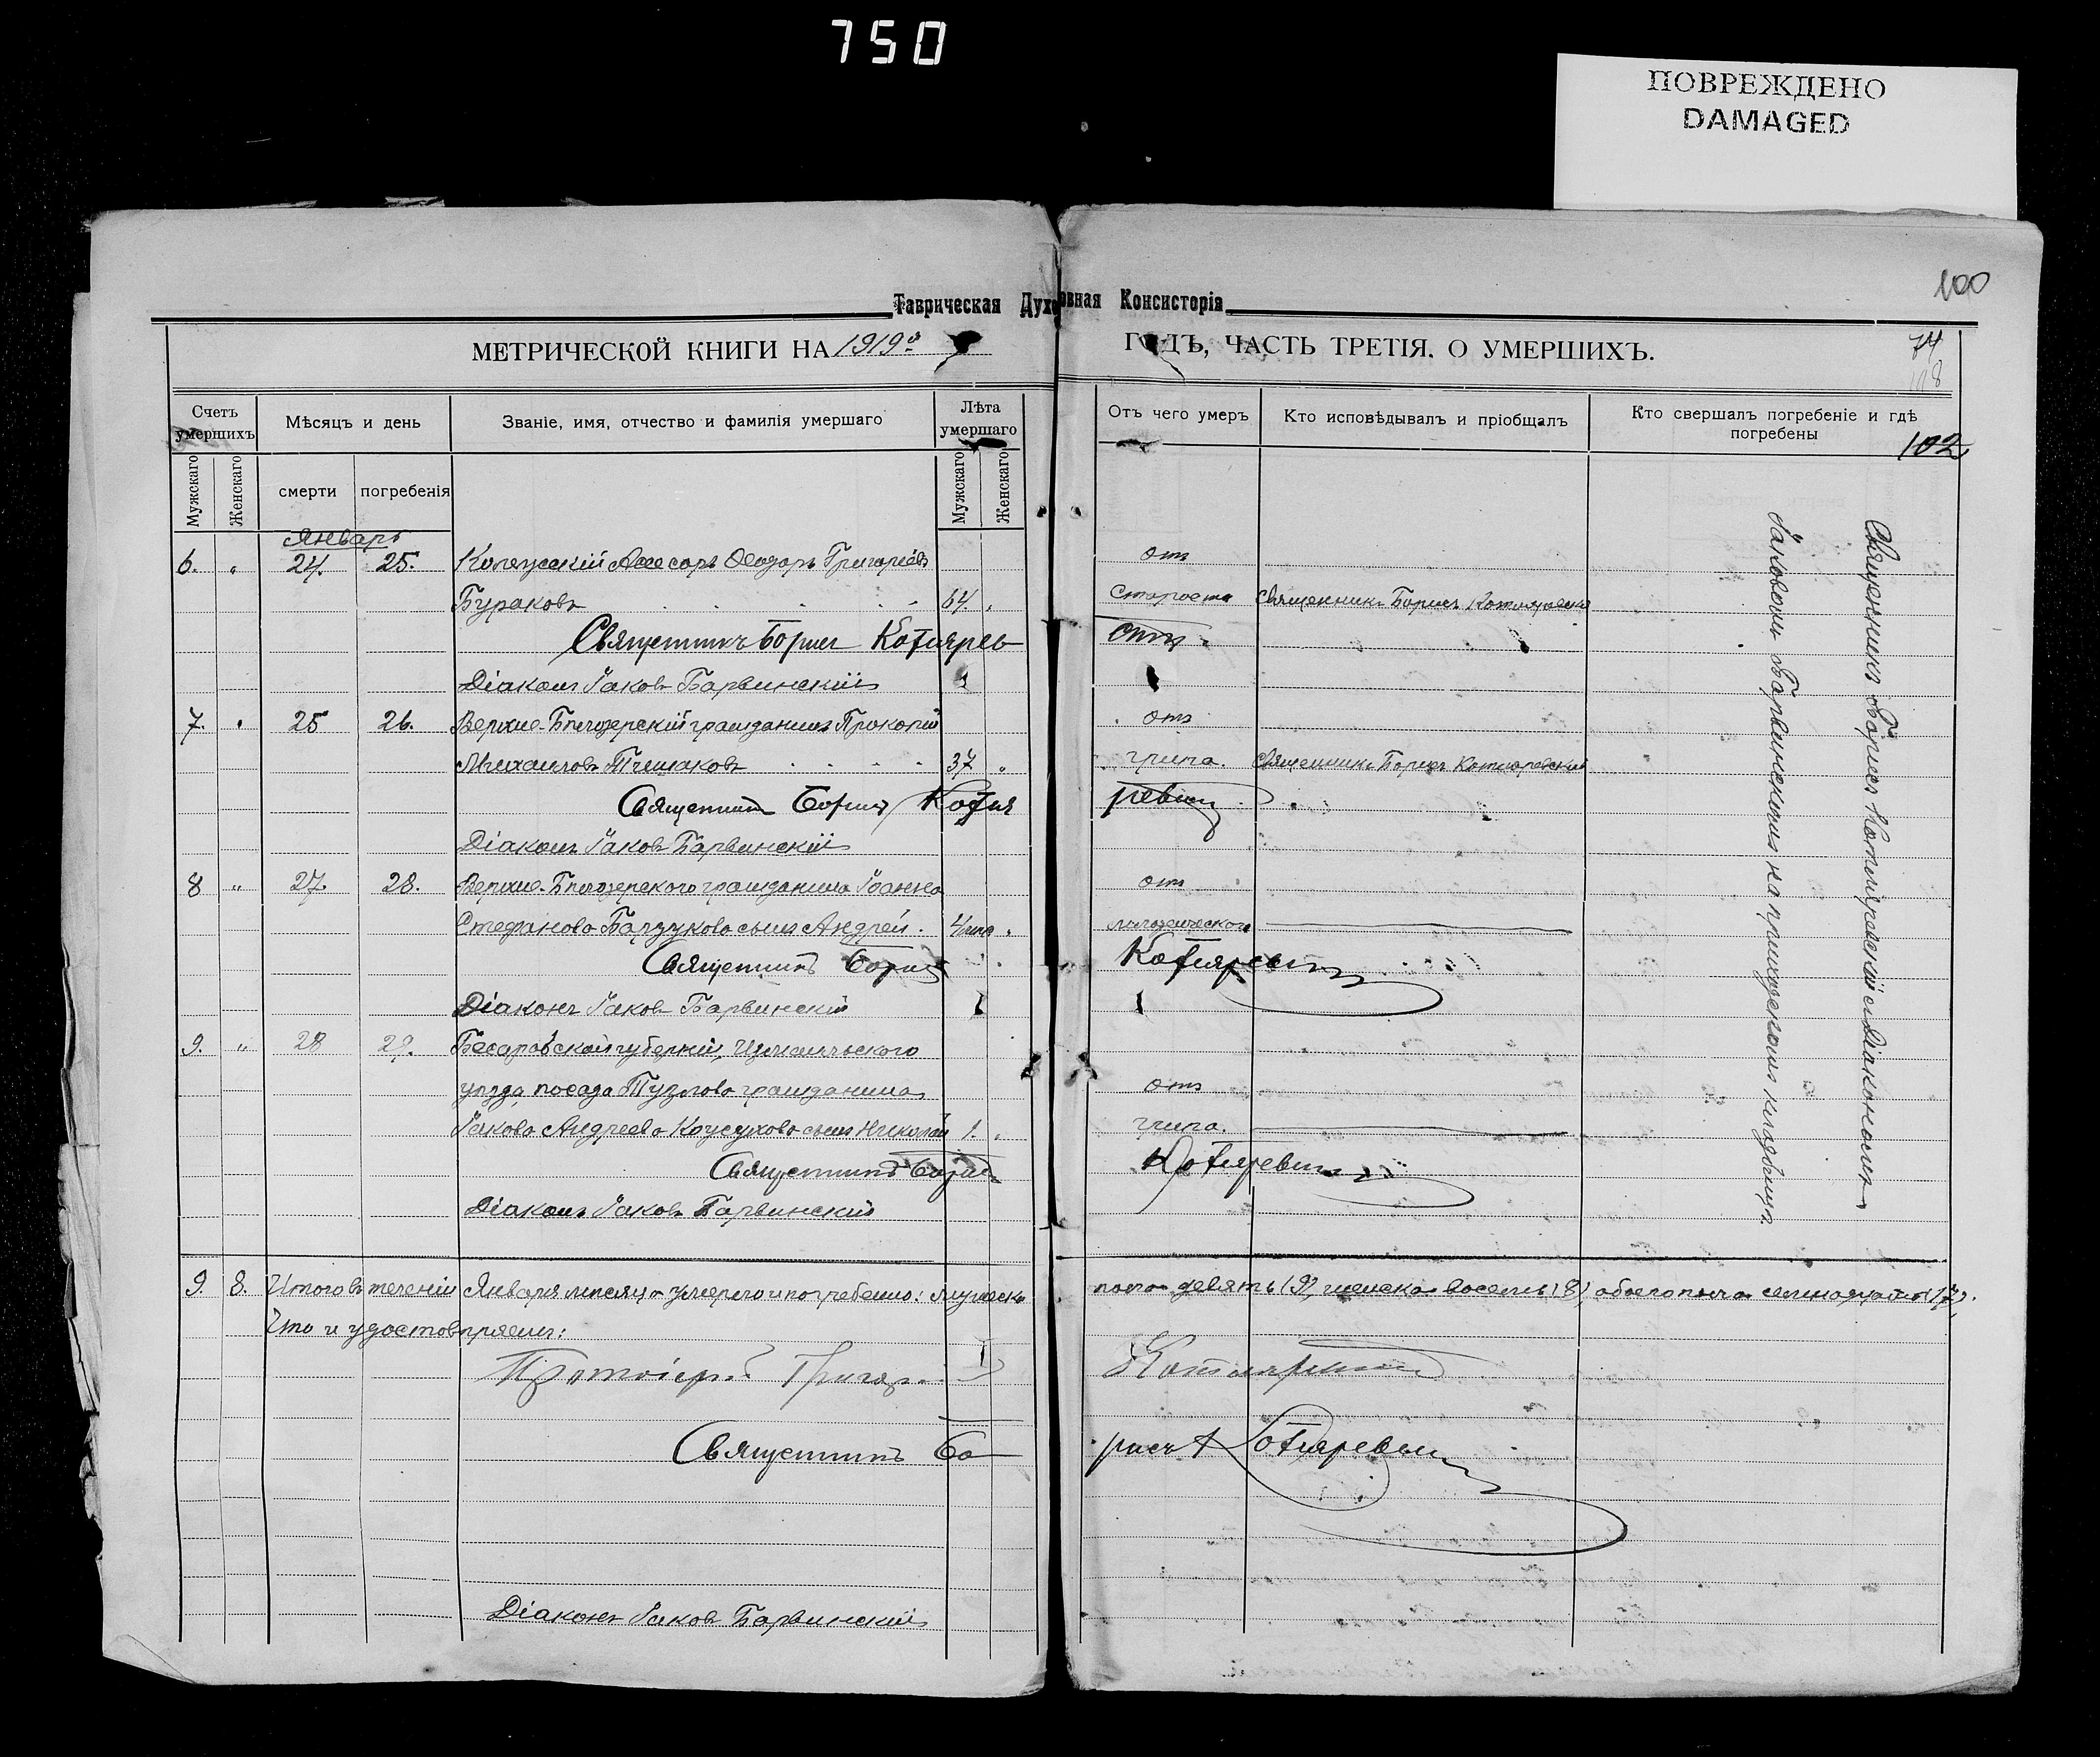 750
ПОВРЕЖДЕНО
DAMAGED
100
Таврическая Духовная Консисторія
МЕТРИЧЕСКОЙ КНИГИ НА 1919й ГОДЪ, ЧАСТЬ ТРЕТІЯ. О УМЕРШИХЪ.
74
118
102
Счетъ умершихъ
Мѣсяцъ и день
Званіе, имя, отчество и фамилія умершаго
Лѣта умершаго
Отъ чего умеръ
Кто исповѣдывалъ и пріобщалъ
Кто свершалъ погребеніе и гдѣ погребены
Мужскаго Женскаго смерти погребенія Мужскаго Женскаго
Январь
6. „ 24. 25. Коллежскій Ассесоръ Ѳеодоръ Григоріевъ отъ
Бураковъ 64. „ старости Священникъ Борисъ Котляревскій
Священникъ Борисъ Котлярев
Діаконъ Іаковъ Барвинскій
7. „ 25 26. Верхне-Бѣлозерскій гражданинъ Прокопій отъ
Михаиловъ 37 „ грипа. Священникъ Борисъ Котляревскій
Священникъ Борисъ Котляревскій
Діаконъ Іаковъ Барвинскій
8 „ 27. 28. Верхне-Бѣлозерского гражданина Іоанна отъ
Стефанова сынъ Андрей.
Священникъ Борисъ Котляревскій
Діаконъ Іаковъ Барвинскій
9. „ 28 29. Бесарабской губерніи, Измаильского
уѣзда, посада Тузлова гражданина отъ
Іакова Андреева сынъ Николай 1. „ грипа.
Священникъ Борисъ Котляревскій
Діаконъ Іаковъ Барвинскій
Священникъ Борисъ Котляревскій съ Діакономъ
Іаковомъ Барвинскимъ на приходскомъ кладбищѣ.
9. 8. Итого въ теченіи Января мѣсяца умерло и погребено: мужеска пола девять (9), женска восемь (8), обоего пола семнадцать (17).
Что и удостовѣряемъ:
Протоіерей Григорій Котляревскій
Священникъ Борисъ Котляревскій
Діаконъ Іаковъ Барвинскій